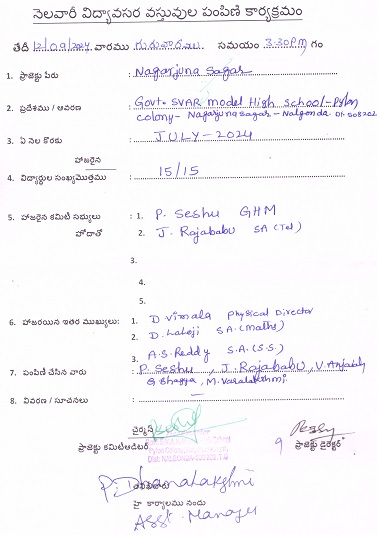 నెలవారీ విద్యావసర వస్తువుల పంపిణి కార్యక్రమం
తేదీ 12/09/2024 వారము గురువారము. సమయం 3.30PM గం
1. ప్రాజెక్టు పేరు : Nagarjuna Sagar
2. ప్రదేశము / ఆవరణ : Govt. SVAR model High School - Pylon
colony - Nagarjuna sagar - Nalgonda Dt-508202
3. ఏ నెల కొరకు : JULY - 2024
హాజరైన
4. విద్యార్థుల సంఖ్యమొత్తము : 15/15
5. హాజరైన కమిటి సభ్యులు : 1. P. Seshu GHM
హోదాతో 2. J. Rajababu SA (Tel)
3.
4.
5.
6. హాజరయిన ఇతర ముఖ్యులు: 1. D Vimala Physical Director
2. D. Laloji S.A. (maths)
3. A.S. Reddy S.A. (S.S.)
7. పంపిణి చేసిన వారు : P. Seshu, J. Rajababu, V.
Bhagya, M. Varalakshmi.
8. వివరణ / సూచనలు : —
చైర్మన్
ప్రాజెక్టు కమిటి ప్రాజెక్టు డైరెక్టర్
P. Dhanalakshmi
హై కార్యాలము నందు
Asst. Manager